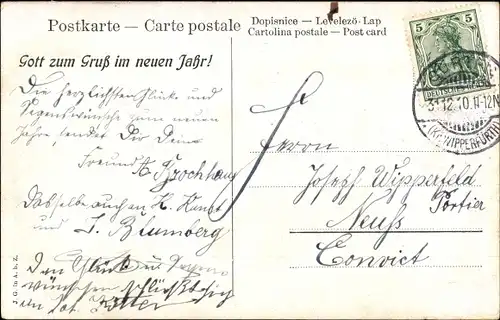 Postkarte — Carte postale
Dopisnice — Levelező-Lap
Cartolina postale — Post card
Gott zum Gruß im neuen Jahr!
Die herzlichsten Glück- und
Segenswünsche zum neuen
Jahre, sendet Dir Dein
Freund A. Brochhaus
Dasselbe auch
und J. Blumberg
Den Glück u. Segens
wünschen schließt sich
an
Herrn
Joseph Wipperfeld
Portier
Neuß
Convict
5 5
DEUTSCHES REICH
31.12.10.11-12N
(KR. WIPPERFÜRTH)
J. G. m. b. Z.